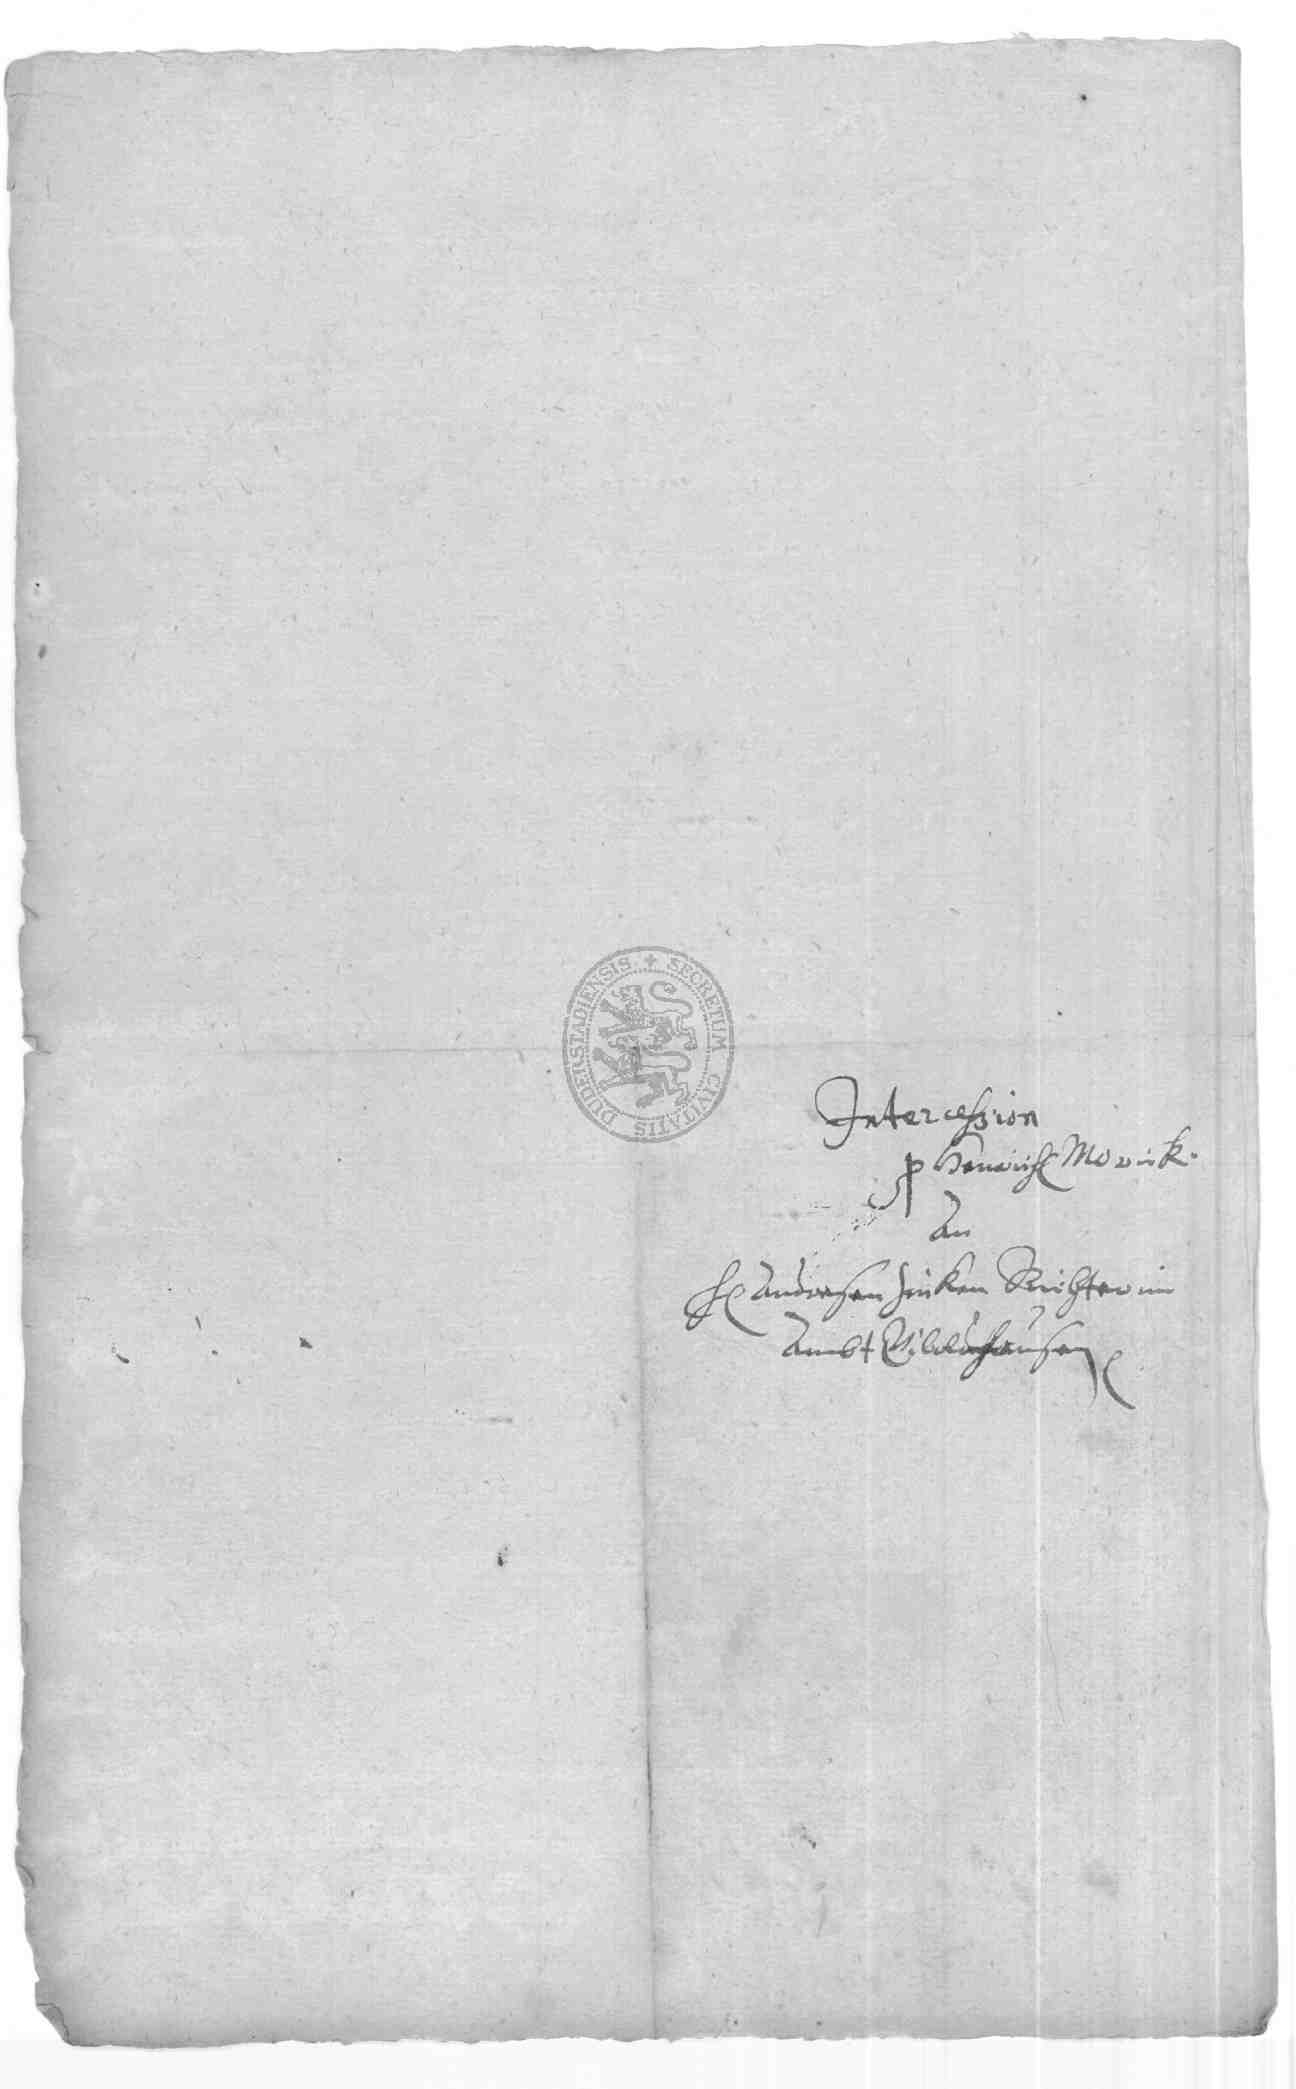 SECRETUM CIVITATIS DUDERSTADIENSIS
Intercession
p Henrich Morick.
An
H Andresen Hinken Richter im
Ambt